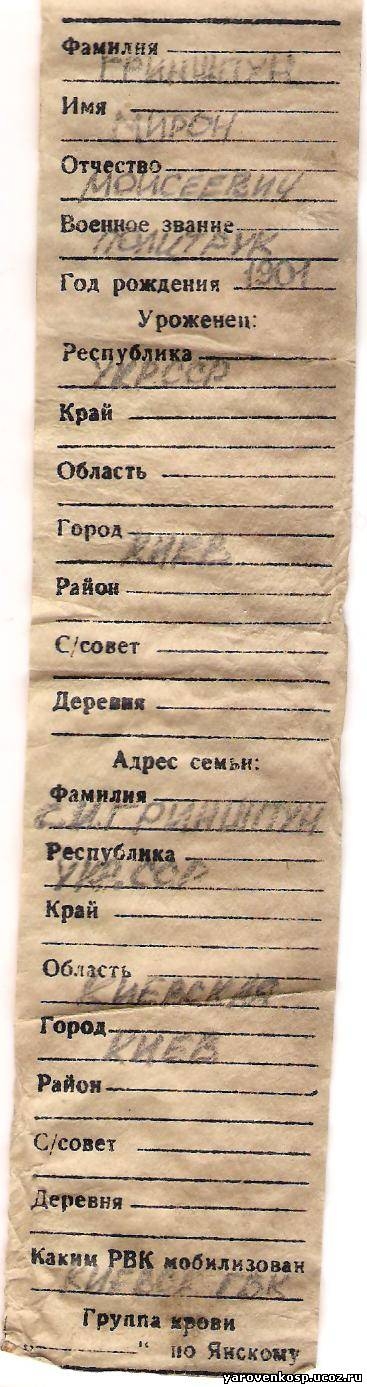 Фамилия
ГРИНШПУН
Имя
МИРОН
Отчество
МОИСЕЕВИЧ
Военное звание
ПОЛИТРУК
Год рождения 1901
Уроженец:
Республика
УКР.ССР
Край
Область
Город
КИЕВ
Район
С/совет
Деревня
Адрес семьи:
Фамилия
ГРИНШПУН
Республика
УКР.ССР
Край
Область
КИЕВСКАЯ
Город
КИЕВ
Район
С/совет
Деревня
Каким РВК мобилизован
КИЕВСК ГВК
Группа крови
„ “ по Янскому
yarovenkosp.ucoz.ru